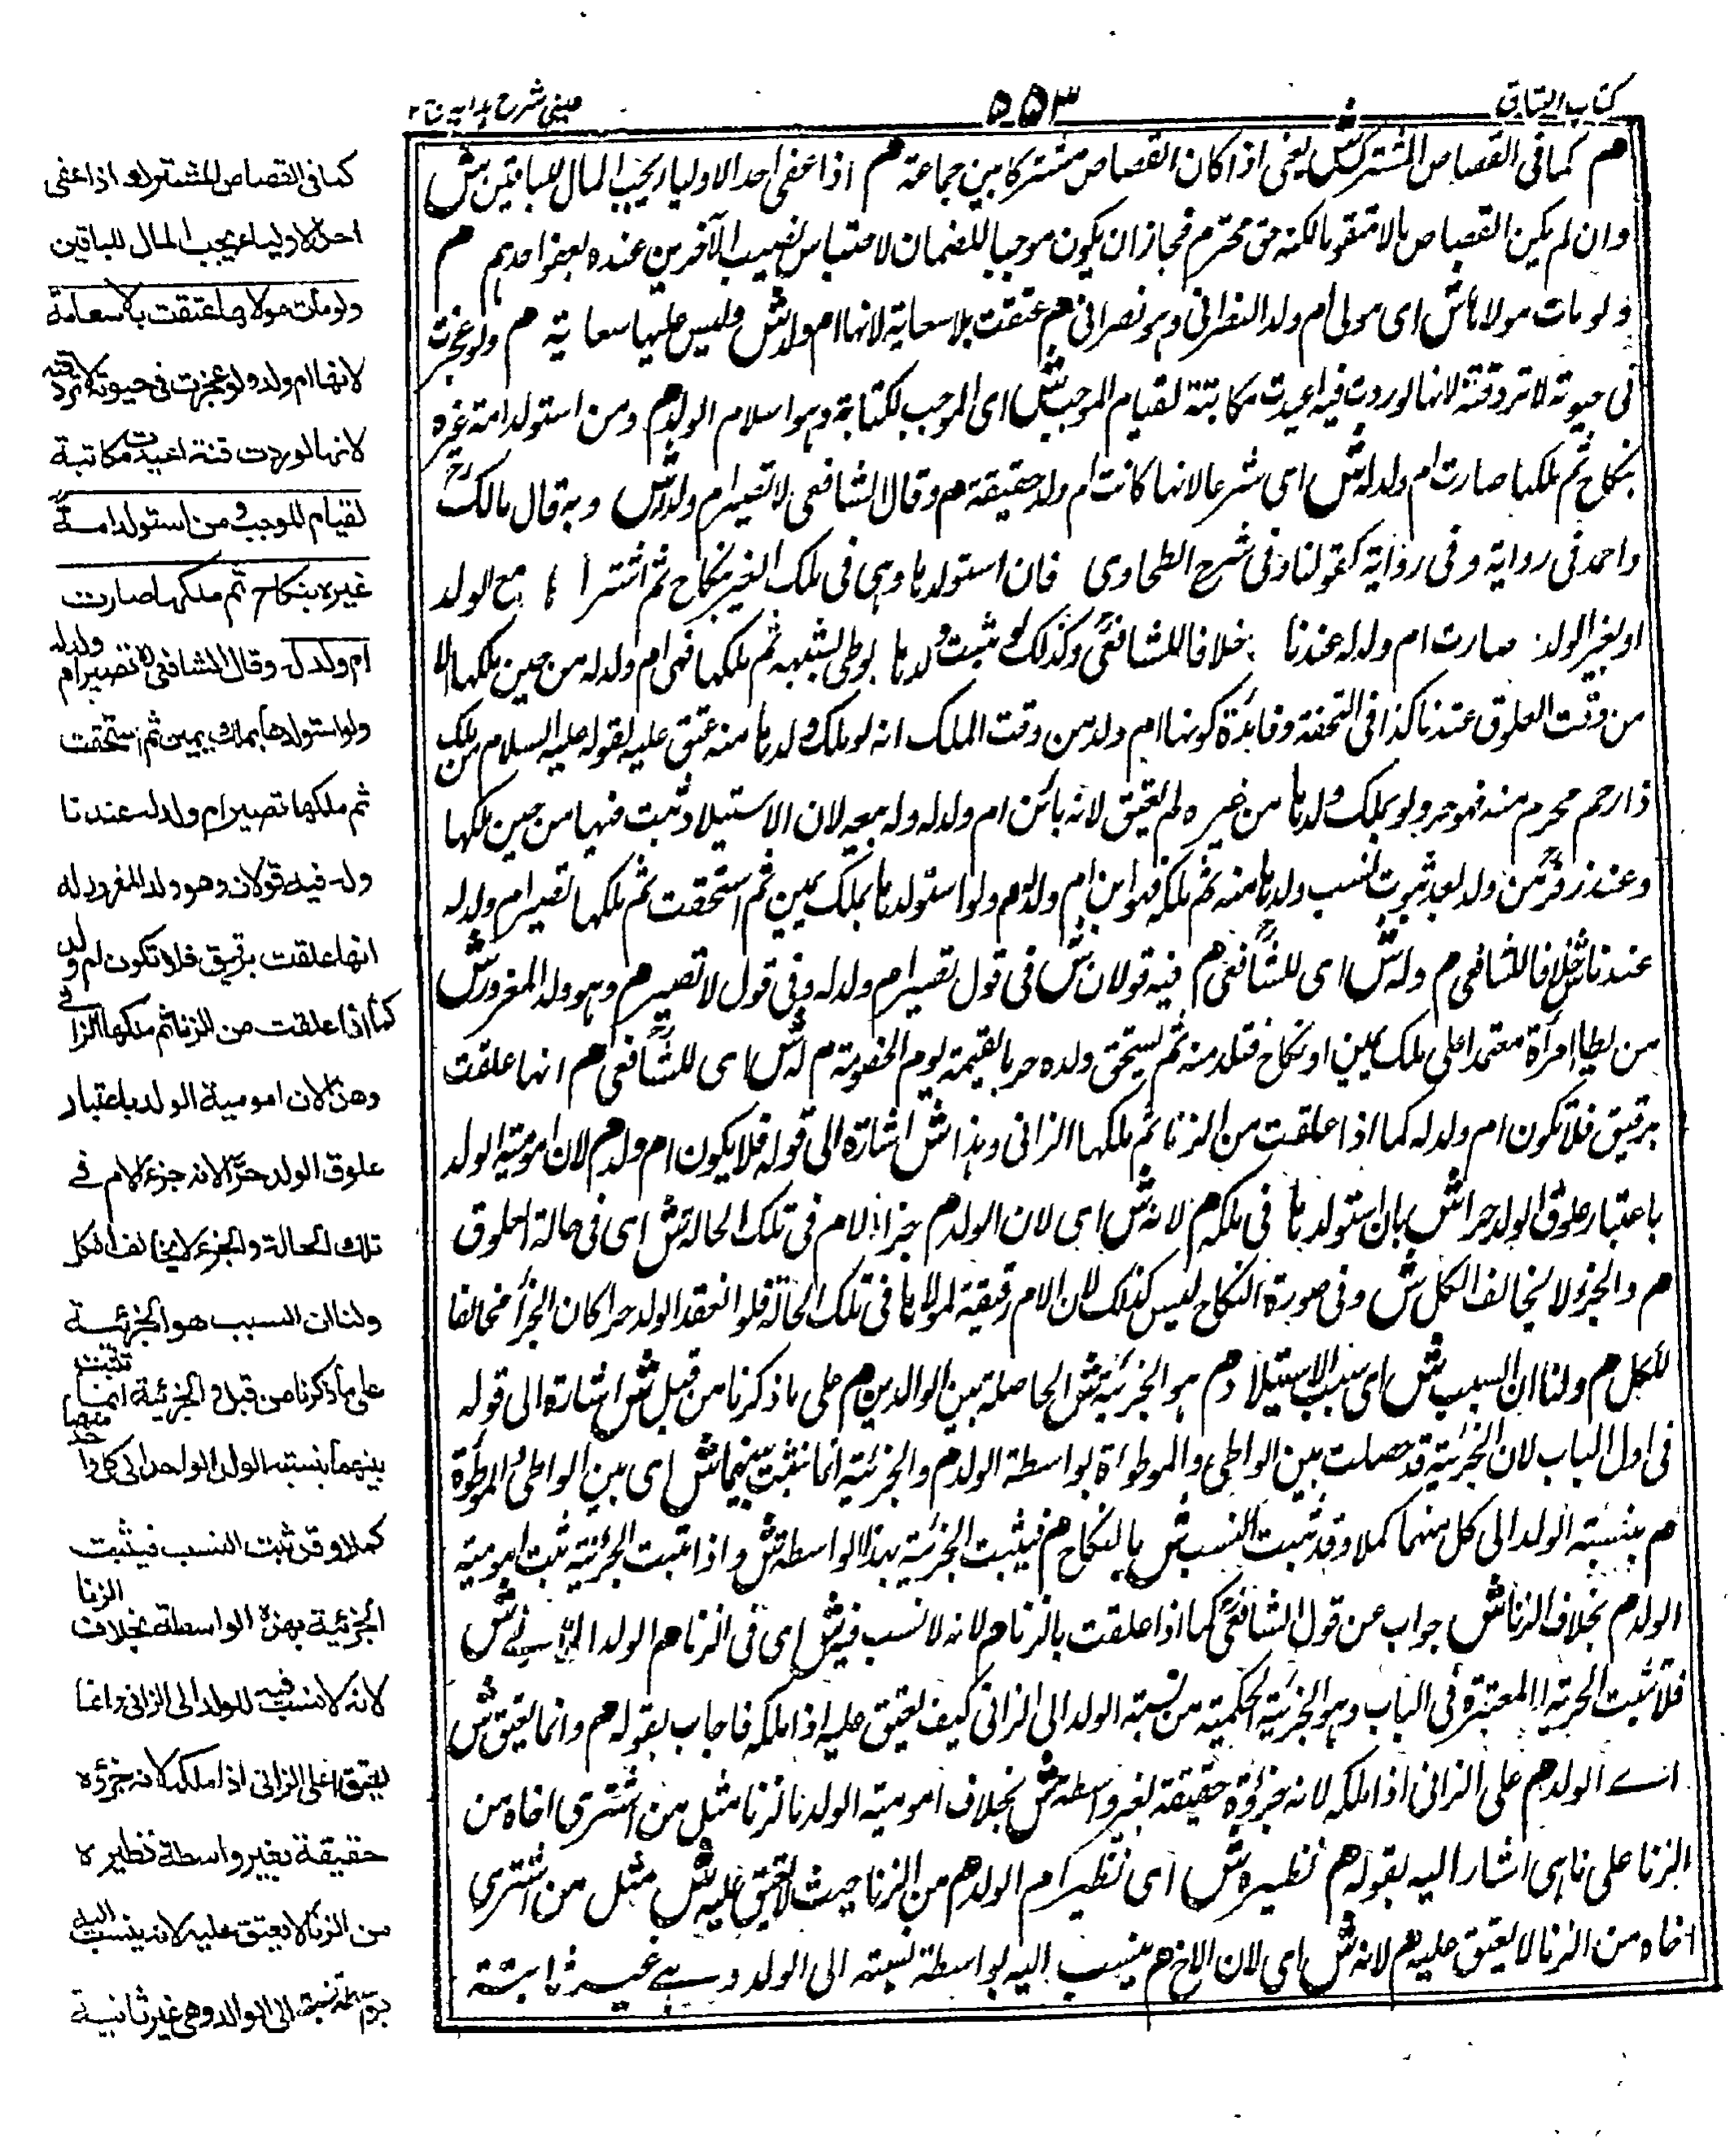 كتاب العتاق
٥٥٣
عيني شرح هدايه ج ٢
هم كما في القصاص المشترك ش يعني اذا كان القصاص مشتركا بين جماعة هم اذا عفى احد الاولياء يجب المال للباقين ش
وان لم يكن القصاص مالا متقوما لكنه حق محترم فجاز ان يكون موجبا للضمان لاحتباس نصيب الآخرين عنده بعفو احدهم هم
ولو مات مولاها ش اى مولى ام ولد النصراني وهو نصراني هم عتقت بلا سعاية لانها ام ولد ش فليس عليها سعاية هم ولو عجزت
في حيوته لا ترد قنة لانها لو ردت فيه اعيدت مكاتبة لقيام الموجب ش اى الموجب لكتابة وهو اسلام الولد هم ومن استولد امة غيره
بنكاح ثم ملكها صارت ام ولد له ش اى شرعا لانها كانت ام ولد حقيقة هم وقال الشافعي لا تصير ام ولد له ش وبه قال مالك
واحمد في رواية وفي رواية كقولنا وفي شرح الطحاوى فان استولدها وهي في ملك الغير بنكاح ثم اشتراها مع الولد
او بغير الولد صارت ام ولد له عندنا خلافا للشافعي وكذلك لو ثبت ولدها بوطى لشبهه ثم ملكها فهي ام ولد له من حين ملكها لا
من وقت العلوق عندنا كذا في التحفة وفائدة كونها ام ولد من وقت الملك انه لو ملك ولدها منه عتق عليه لقوله عليه السلام من ملك
ذا رحم محرم منه فهو حر ولو يملك ولدها من غيره لم يعتق لانه بائن ام ولد له وله بيعه لان الاستيلاد ثبت فيها من حين ملكها
وعند زفر من ولد بعد ثبوت نسب ولدها منه ثم ملكه فهو ابن ام ولد هم ولو استولدها بملك يمين ثم استحقت ثم ملكها تصير ام ولد له
عندنا ش خلافا للشافعي هم وله ش اى للشافعي هم فيه قولان ش في قول تصير ام ولد له وفي قول لا تصير هم وهو ولد المغرور ش
من يطأ امرأة معتمدا على ملك يمين او نكاح فتلد منه ثم يستحق ولده حر بالقيمة يوم الخصومة هم له ش اى للشافعي هم انها علقت
برقيق فلا تكون ام ولد له كما اذا علقت من الزنا ثم ملكها الزاني وهذا ش اشارة الى قوله فلا يكون ام ولد هم لان امومية الولد
باعتبار علوق الولد حرا ش بان استولدها في ملكه هم لانه ش اى لان الولد هم جزء الام في تلك الحالة ش اى في حالة العلوق
هم والجزء لا يخالف الكل ش وفي صورة النكاح ليس كذلك لان الام رقيقة لمولاها في تلك الحالة فلو انعقد الولد حرا كان الجزأ مخالفا
للكل هم ولنا ان السبب ش اى سبب الاستيلاد هم هو الجزئية ش الحاصلة بين الوالدين هم على ما ذكرنا من قبل ش اشارة الى قوله
في اول الباب لان الجزئية قد حصلت بين الواطى والموطوأة بواسطة الولد هم والجزئية انما تثبت بينهما ش اى بين الواطى والموطوة
هم بنسبة الولد الى كل منهما كملا وقد ثبت النسب ش بالنكاح هم فيثبت الجزئية بهذا الواسطة ش واذا ثبت الجزئية ثبت امومية
الولد هم بخلاف الزنا ش جواب عن قول الشافعي كما اذا علقت بالزنا هم لانه لا نسب فيه ش اى في الزنا هم الولد الى الزاني ش
فلا تثبت الجزئية المعتبرة في الباب وهو الجزئية الحكمية من نسبة الولد الى الزاني كيف يعتق عليه اذا ملكه فاجاب بقوله هم وانما يعتق ش
اى الولد هم على الزاني اذا ملكه لانه جزؤه حقيقة بغير واسطة ش بخلاف امومية الولد نا لزنا مثل من اشترى اخاه من
الزنا على ناهى اشار اليه بقوله هم نظيره ش اى نظير ام الولد هم من الزنا حيث لا يعتق عليه ش مثل من اشترى
اخاه من الزنا لا يعتق عليه هم لانه ش اى لان الاخ هم ينسب اليه بواسطة نسبته الى الولد وهي غير ثابتة
كما في القصاص المشترك اذا عفى
احد الاولياء يجب المال للباقين
ولو مات مولاها عتقت بلا سعاية
لانها ام ولد ولو عجزت في حيوته لا ترد قنة
لانها لو ردت قنة اعيدت مكاتبة
لقيام الموجب ومن استولد امة
غيره بنكاح ثم ملكها صارت
ام ولد له وقال الشافعي لا تصير ام ولد له
ولو استولدها بملك يمين ثم استحقت
ثم ملكها تصير ام ولد له عندنا
وله فيه قولان وهو ولد المغرور له
انها علقت برقيق فلا تكون ام ولد
كما اذا علقت من الزنا ثم ملكها الزاني
وهذا لان امومية الولد باعتبار
علوق الولد حرا لانه جزء الام في
تلك الحالة والجزء لا يخالف الكل
ولنا ان السبب هو الجزئية
على ما ذكرنا من قبل والجزئية انما تثبت
بينهما بنسبة الولد الواحد الى كل واحد منهما
كملا وقد ثبت النسب فيثبت
الجزئية بهذه الواسطة بخلاف الزنا
لانه لا نسب فيه للولد الى الزاني وانما
يعتق على الزاني اذا ملكه لانه جزؤه
حقيقة بغير واسطة نظيره
من الزنا لا يعتق عليه لانه ينسب اليه
بواسطة نسبته الى الوالد وهي غير ثابتة